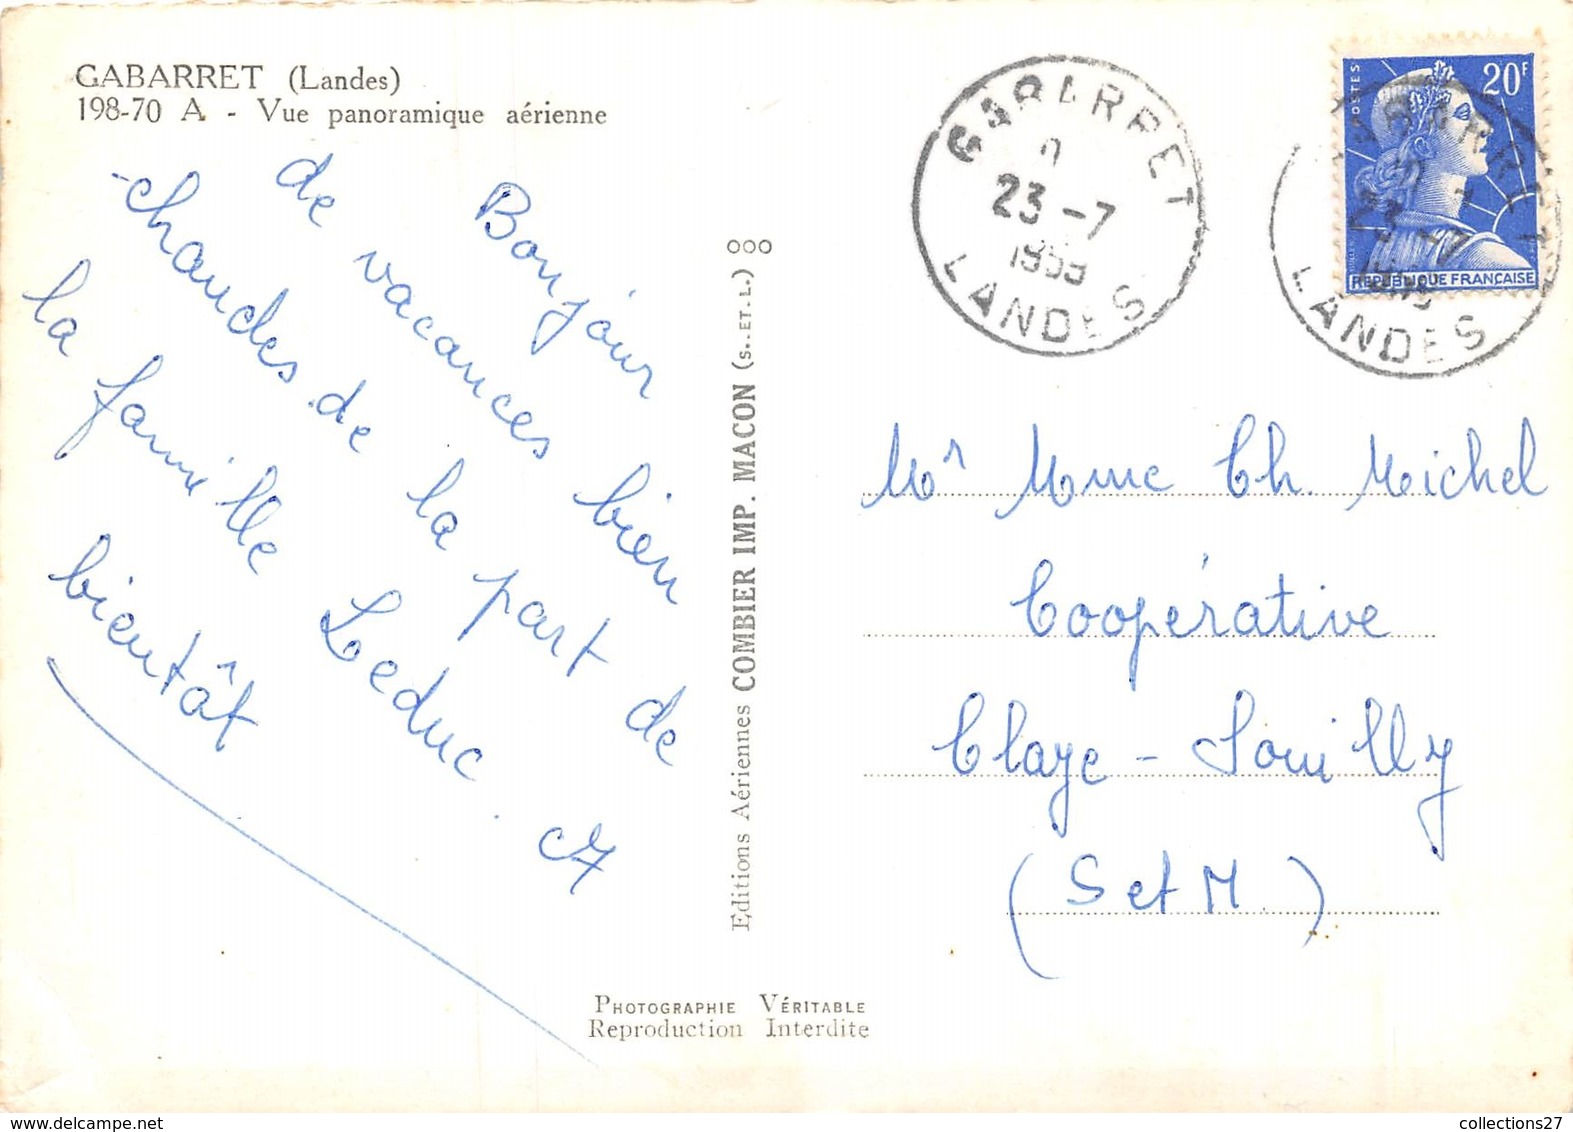 GABARRET (Landes)
198-70 A - Vue panoramique aérienne
Bonjour
de vacances bien
chaudes de la part de
la famille Leduc. A
bientôt
Editions Aériennes COMBIER IMP. MACON (S.-ET-L.) 000
PHOTOGRAPHIE VÉRITABLE
Reproduction Interdite
GABARRET
23-7
1959
LANDES
POSTES
20F
REPUBLIQUE FRANÇAISE
GABARRET
23-7
1959
LANDES
Mr Mme Ch. Michel
Coopérative
Claye-Souilly
(S et M)
collections27